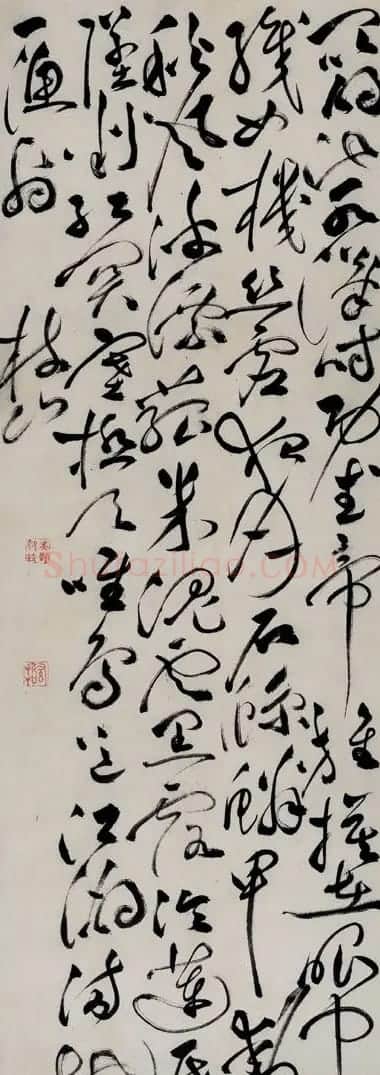 昆明池水漢時功武帝旌旗在眼中
織女機絲虛夜月石鯨鱗甲動
秋風波漂菰米沉雲黑露冷蓮房
墜粉紅關塞極天唯鳥道江湖滿地
一漁翁
枝山
Shufaziliao.com